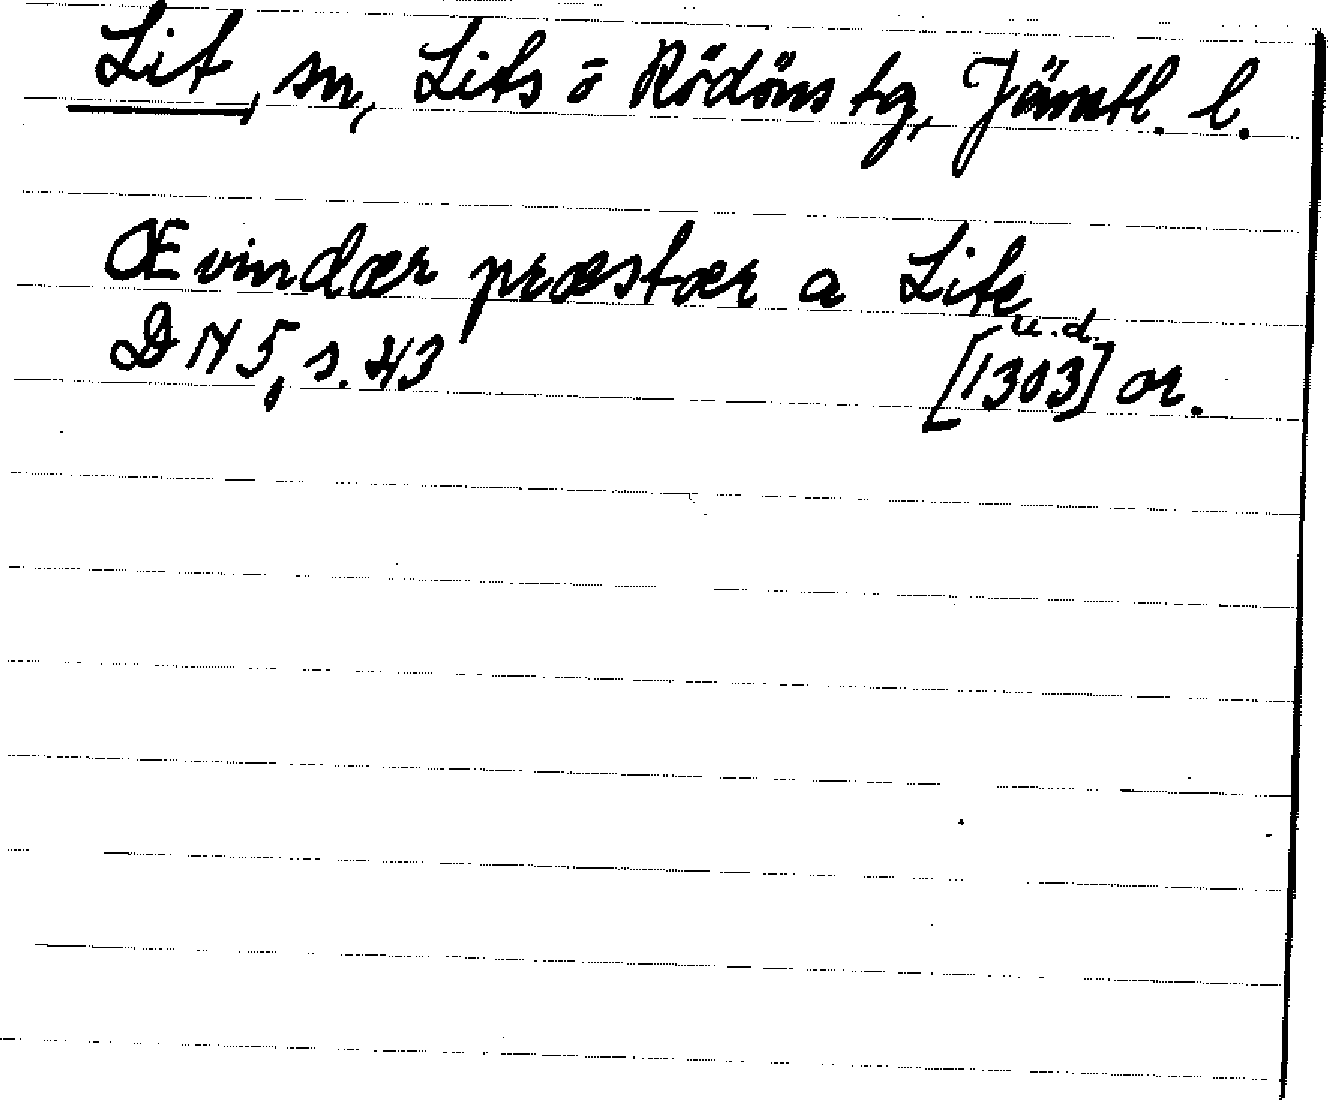 Lit, sn, Lits o Rödöns tg, Jämtl. l.
Œvindær præstær a Lite
DN 5, s. 43 [1303] u.d. or.